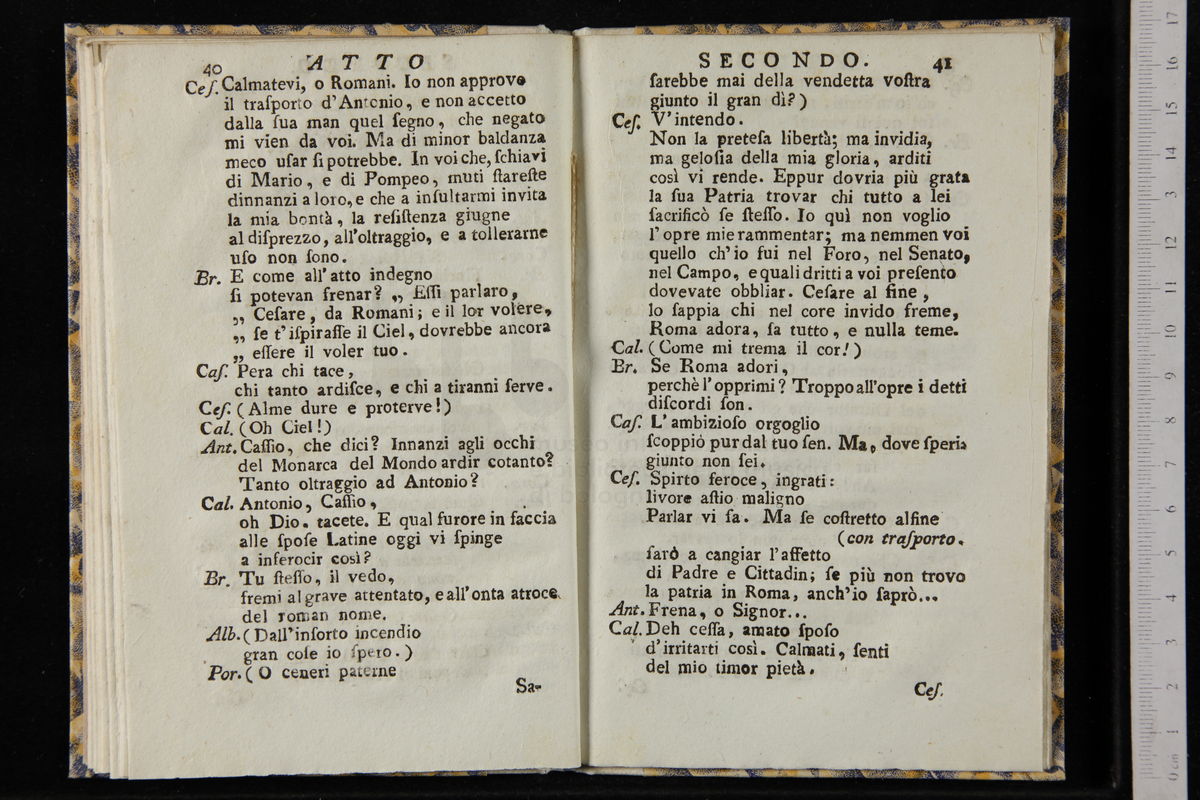 40 ATTO
Ceſ. Calmatevi, o Romani. Io non approvo
il traſporto d'Antonio, e non accetto
dalla ſua man quel ſegno, che negato
mi vien da voi. Ma di minor baldanza
meco uſar ſi potrebbe. In voi che, ſchiavi
di Mario, e di Pompeo, muti ſtareſte
dinnanzi a loro, e che a inſultarmi invita
la mia bontà, la reſiſtenza giugne
al diſprezzo, all'oltraggio, e a tollerarne
uſo non ſono.
Br. E come all'atto indegno
ſi potevan frenar? „ Eſſi parlaro,
„ Ceſare, da Romani; e il lor volere,
„ ſe t'iſpiraſſe il Ciel, dovrebbe ancora
„ eſſere il voler tuo.
Caſ. Pera chi tace,
chi tanto ardiſce, e chi a tiranni ſerve.
Ceſ. (Alme dure e proterve!)
Cal. (Oh Ciel!)
Ant. Caſſio, che dici? Innanzi agli occhi
del Monarca del Mondo ardir cotanto?
Tanto oltraggio ad Antonio?
Cal. Antonio, Caſſio,
oh Dio. tacete. E qual furore in faccia
alle ſpoſe Latine oggi vi ſpinge
a inferocir così?
Br. Tu ſteſſo, il vedo,
fremi al grave attentato, e all'onta atroce
del roman nome.
Alb. (Dall'inſorto incendio
gran coſe io ſpero.)
Por. (O ceneri paterne
Sa-
SECONDO. 41
ſarebbe mai della vendetta voſtra
giunto il gran dì?)
Ceſ. V'intendo.
Non la preteſa libertà; ma invidia,
ma geloſia della mia gloria, arditi
così vi rende. Eppur dovria più grata
la ſua Patria trovar chi tutto a lei
ſacrificò ſe ſteſſo. Io quì non voglio
l'opre mie rammentar; ma nemmen voi
quello ch'io fui nel Foro, nel Senato,
nel Campo, e quali dritti a voi preſento
dovevate obbliar. Ceſare al fine,
lo ſappia chi nel core invido freme,
Roma adora, ſa tutto, e nulla teme.
Cal. (Come mi trema il cor!)
Br. Se Roma adori,
perchè l'opprimi? Troppo all'opre i detti
diſcordi ſon.
Caſ. L'ambizioſo orgoglio
ſcoppiò pur dal tuo ſen. Ma, dove ſperia
giunto non ſei.
Ceſ. Spirto feroce, ingrati:
livore aſtio maligno
Parlar vi fa. Ma ſe coſtretto alfine
(con traſporto.
ſarò a cangiar l'affetto
di Padre e Cittadin; ſe più non trovo
la patria in Roma, anch'io ſaprò...
Ant. Frena, o Signor...
Cal. Deh ceſſa, amato ſpoſo
d'irritarti così. Calmati, ſenti
del mio timor pietà.
Ceſ.
0 cm 1 2 3 4 5 6 7 8 9 10 11 12 13 14 15 16 17